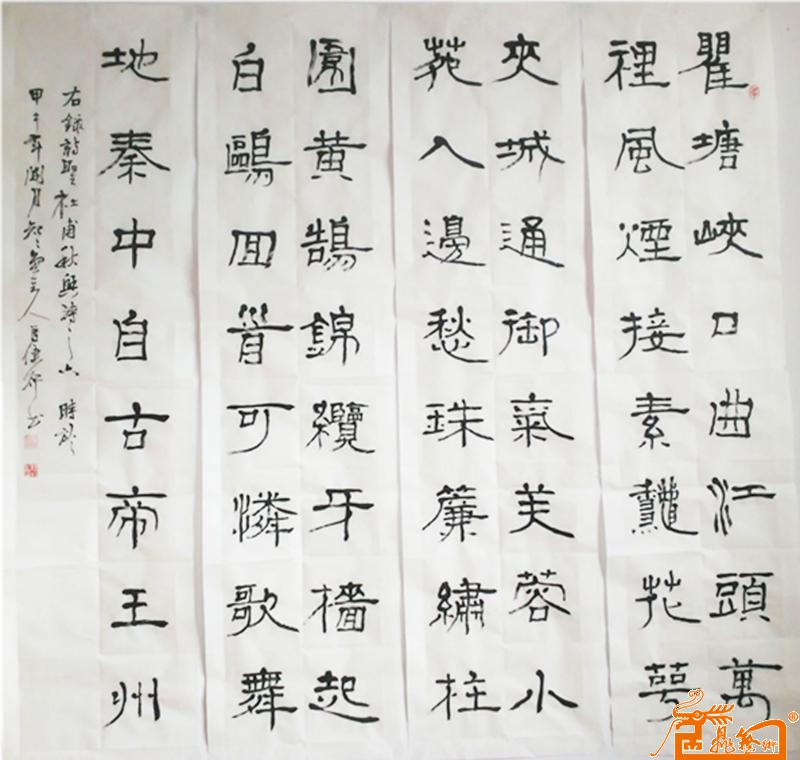 瞿塘峽口曲江頭萬
裡風煙接素龝花萼
夾城通御氣芙蓉小
苑入邊愁珠簾繡柱
圍黃鵠錦纜牙檣起
白鷗回首可憐歌舞
地秦中自古帝王州
右録詩聖杜甫秋興詩之六 時於
甲午年閏月主人書